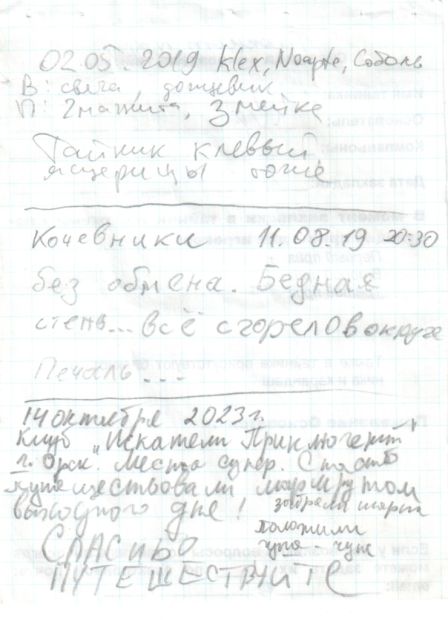 02.05.2019 klex, Noapte, Соболь
В: свеча, дождевик
П: 2 магнита, Змейка
Тайник клёвый,
ящерицы тоже
Кочевники 11.08.19 20:30
без обмена. Бедная
степь... всё сгорело вокруг
Печаль...
14 октября 2023 г.
Клуб "Искатели Приключений"
г. Орск. Места супер.
путешествовали маршрутом
выходного дня!
забрали
положили
чук
СПАСИБО
ПУТЕШЕСТВУЙТЕ